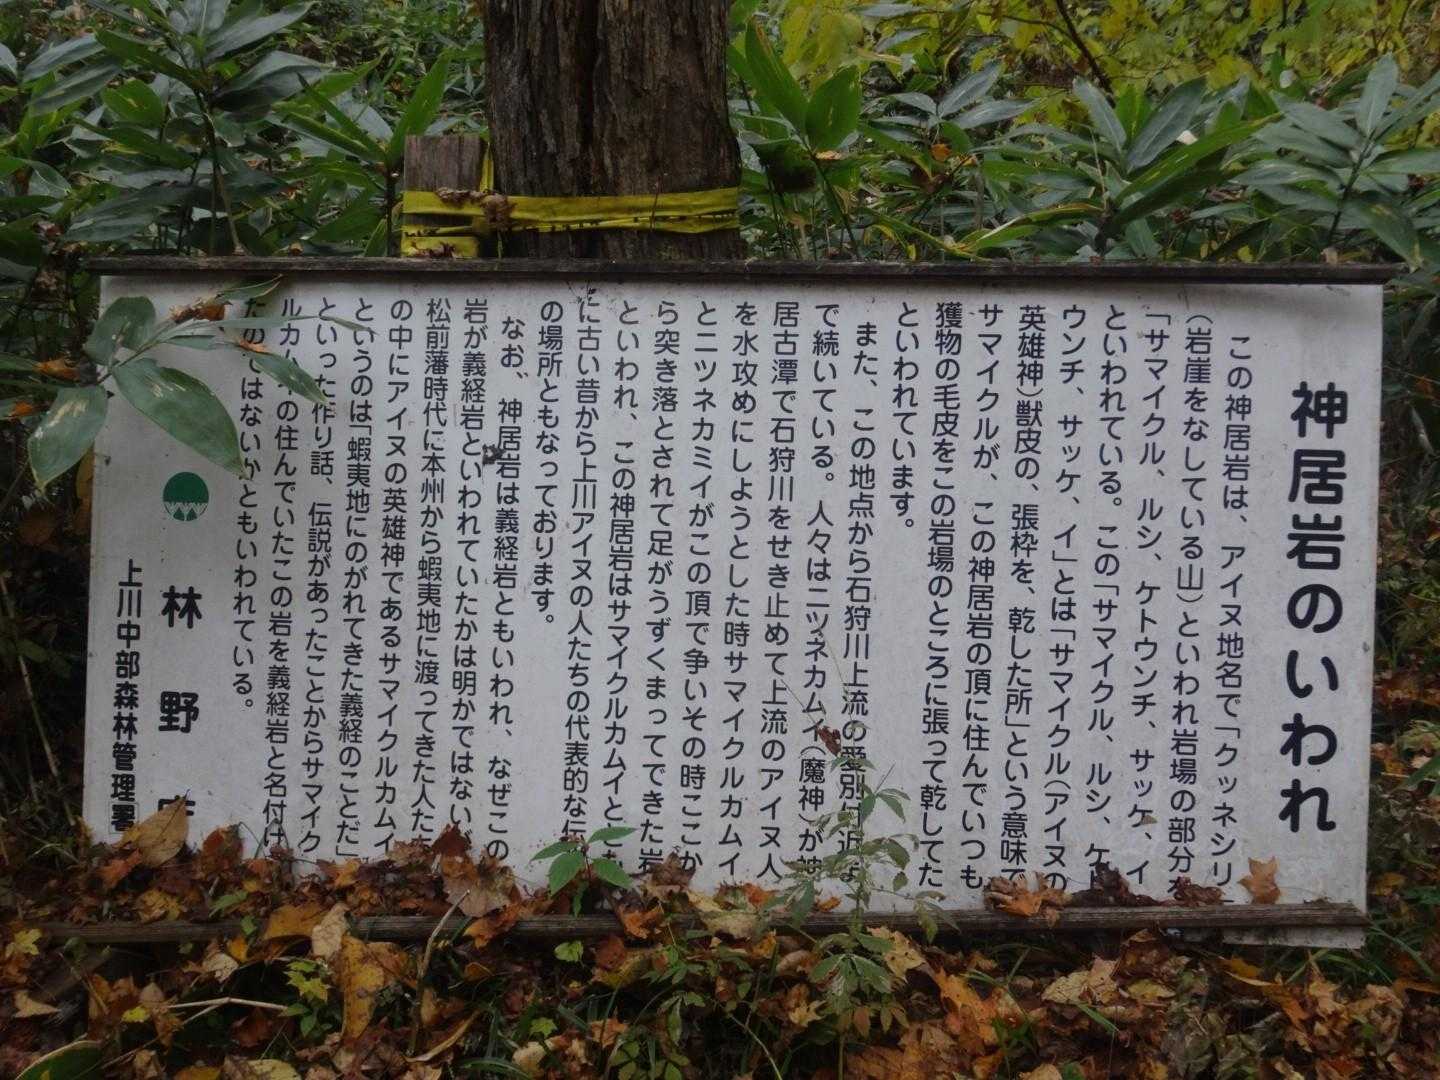 神居岩のいわれ
この神居岩は、アイヌ地名で「クッネシリ」
(岩崖をなしている山)といわれ岩場の部分を
「サマイクル、ルシ、ケトウンチ、サッケ、イ
といわれている。この「サマイクル、ルシ、ケト
ウンチ、サッケ、イ」とは「サマイクル(アイヌの
英雄神)獣皮の、張枠を、乾した所」という意味で
サマイクルが、この神居岩の頂に住んでいつも
獲物の毛皮をこの岩場のところに張って乾してた
といわれています。
また、この地点から石狩川上流の愛別付近ま
で続いている。人々はニツネカムイ(魔神)が神
居古潭で石狩川をせき止めて上流のアイヌ人
を水攻めにしようとした時サマイクルカムイ
とニツネカミイがこの頂で争いその時ここか
ら突き落とされて足がうずくまってできた岩
といわれ、この神居岩はサマイクルカムイとも
に古い昔から上川アイヌの人たちの代表的な伝
の場所ともなっております。
なお、神居岩は義経岩ともいわれ、なぜこの
岩が義経岩といわれていたかは明かではない
松前藩時代に本州から蝦夷地に渡ってきた人た
の中にアイヌの英雄神であるサマイクルカムイ
というのは「蝦夷地にのがれてきた義経のことだ」
といった作り話、伝説があったことからサマイク
ルカムイの住んでいたこの岩を義経岩と名付け
たのではないかともいわれている。
林野庁
上川中部森林管理署